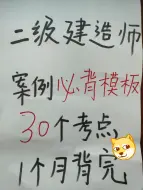 二级建造师
案例必背模板
30个考点
1个月背完